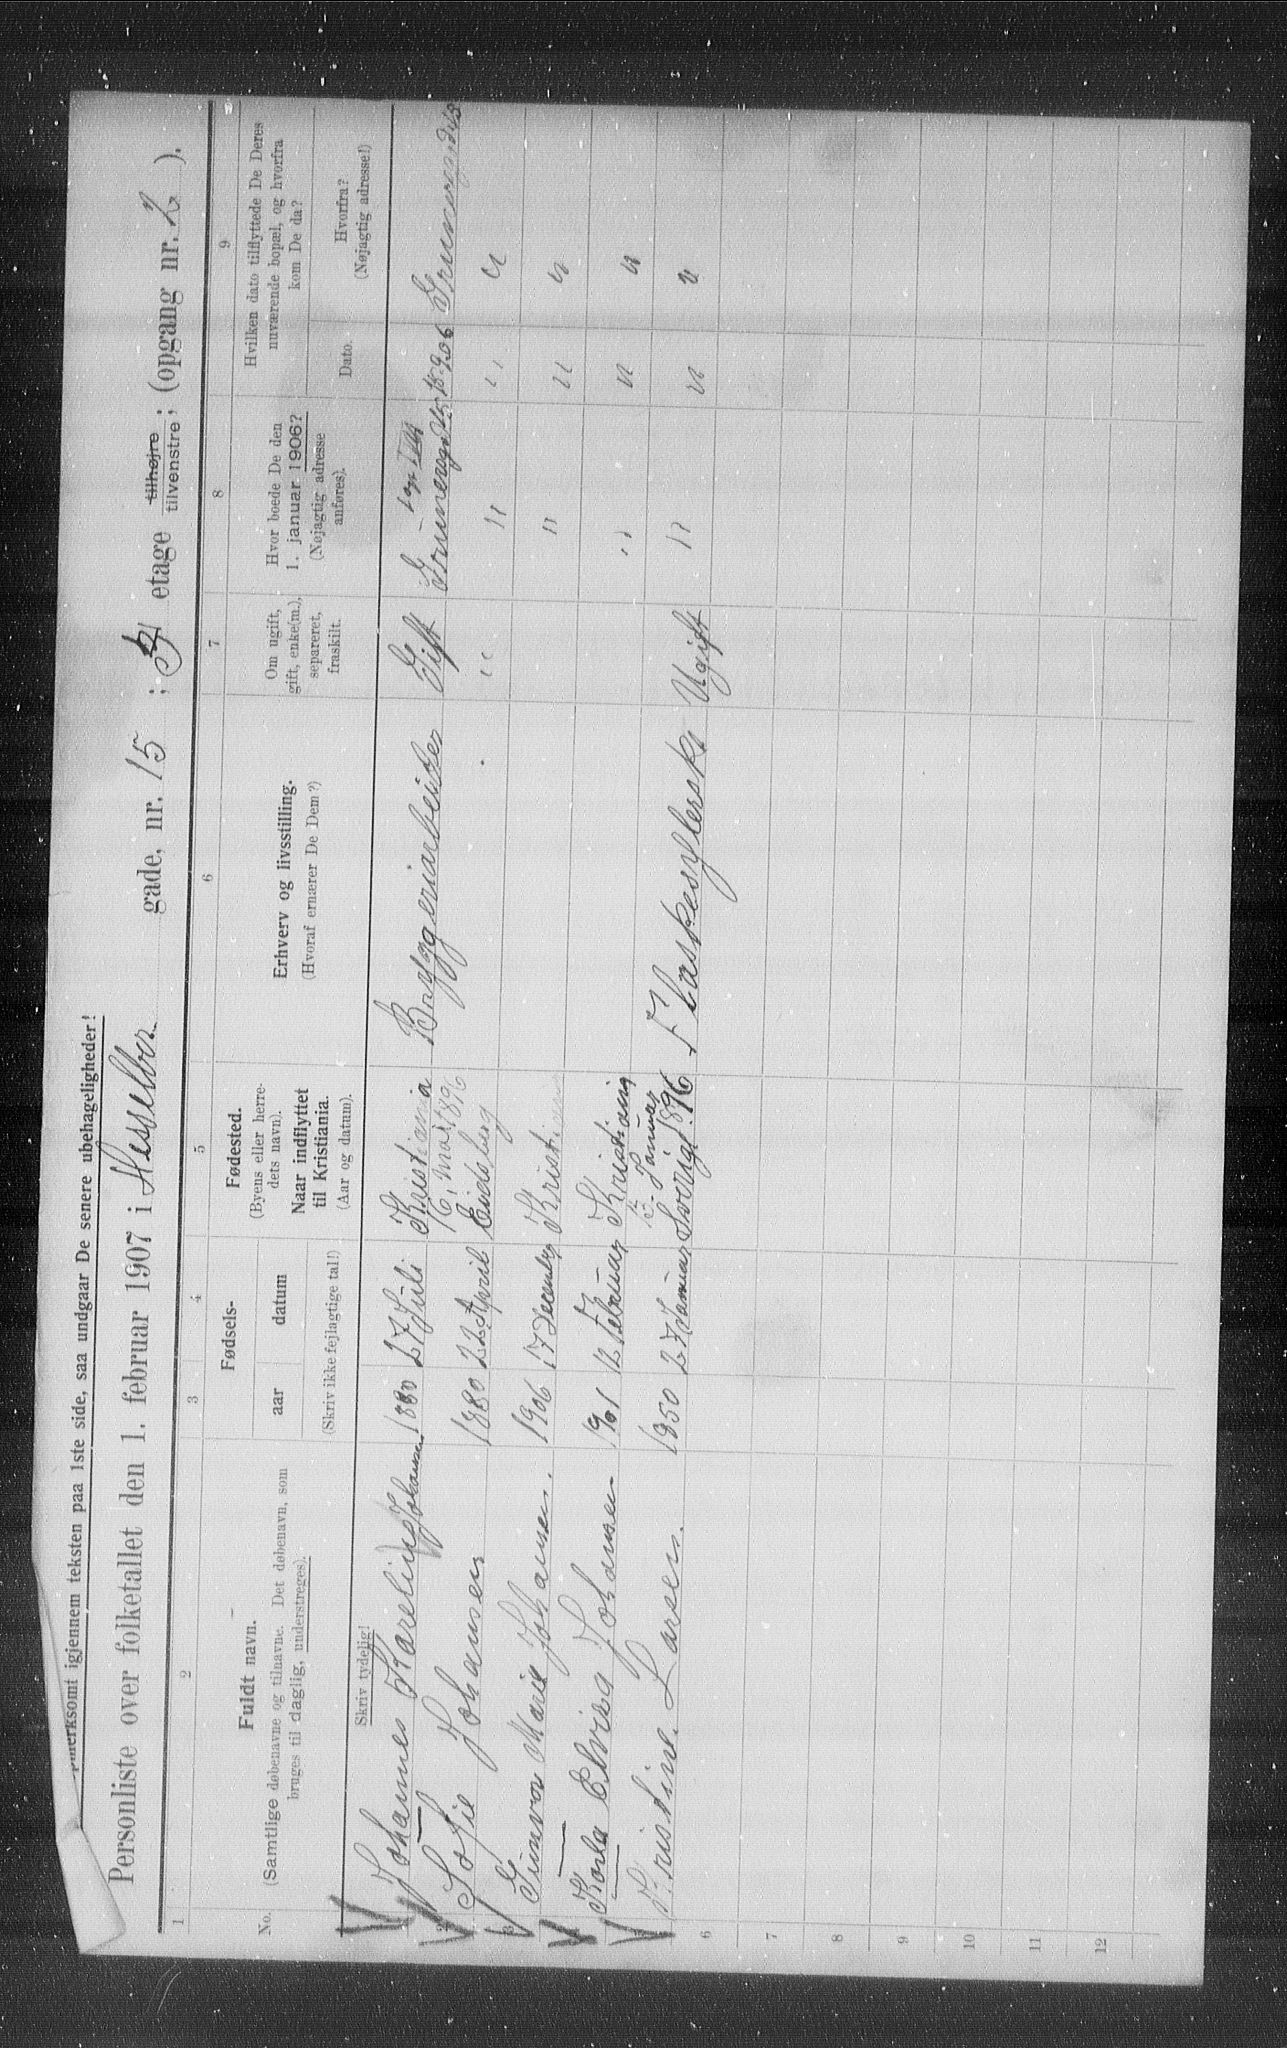 mærksomt igjennem teksten paa 1ste side, saa undgaar De senere ubehageligheder!
Personliste over folketallet den 1. februar 1907 i Hesselber gade, nr. 15 ; etage tilhøjre tilvenstre; (opgang nr. 2 ).
1 2 3 4 5 6 7 8 9
No.
Fuldt navn.
(Samtlige døbenavne og tilnavne. Det døbenavn, som
bruges til daglig, understreges).
Skriv tydelig!
Fødsels-
aar datum
(Skriv ikke fejlagtige tal!)
Fødested.
(Byens eller herre-
dets navn).
Naar indflyttet
til Kristiania.
(Aar og datum).
Erhverv og livsstilling.
(Hvoraf ernærer De Dem?)
Om ugift,
gift, enke(m.),
separeret,
fraskilt.
Hvor boede De den
1. januar 1906?
(Nøjagtig adresse
anføres).
Hvilken dato tilflyttede De Deres
nuværende bopæl, og hvorfra
kom De da?
Dato.
Hvorfra?
(Nøjagtig adresse!)
Johannes Karelius Johansen 1880 27 Juli Kristiania Bryggeriarbeider Gift
16 Mai 1896
2 Sofie Johansen 1880 22 April Eidsberg " " " "
3 Gunvor Marie Johansen. 1906 17 December Kristiania " " "
Karla Elvisa Johansen 1901 12 Februar Kristiania " " "
Januar
Kristine Larsen. 1850 27 Januar Sverige 1896 Flaskeskyllerske Ugift " " "
6
7
8
9
10
11
12